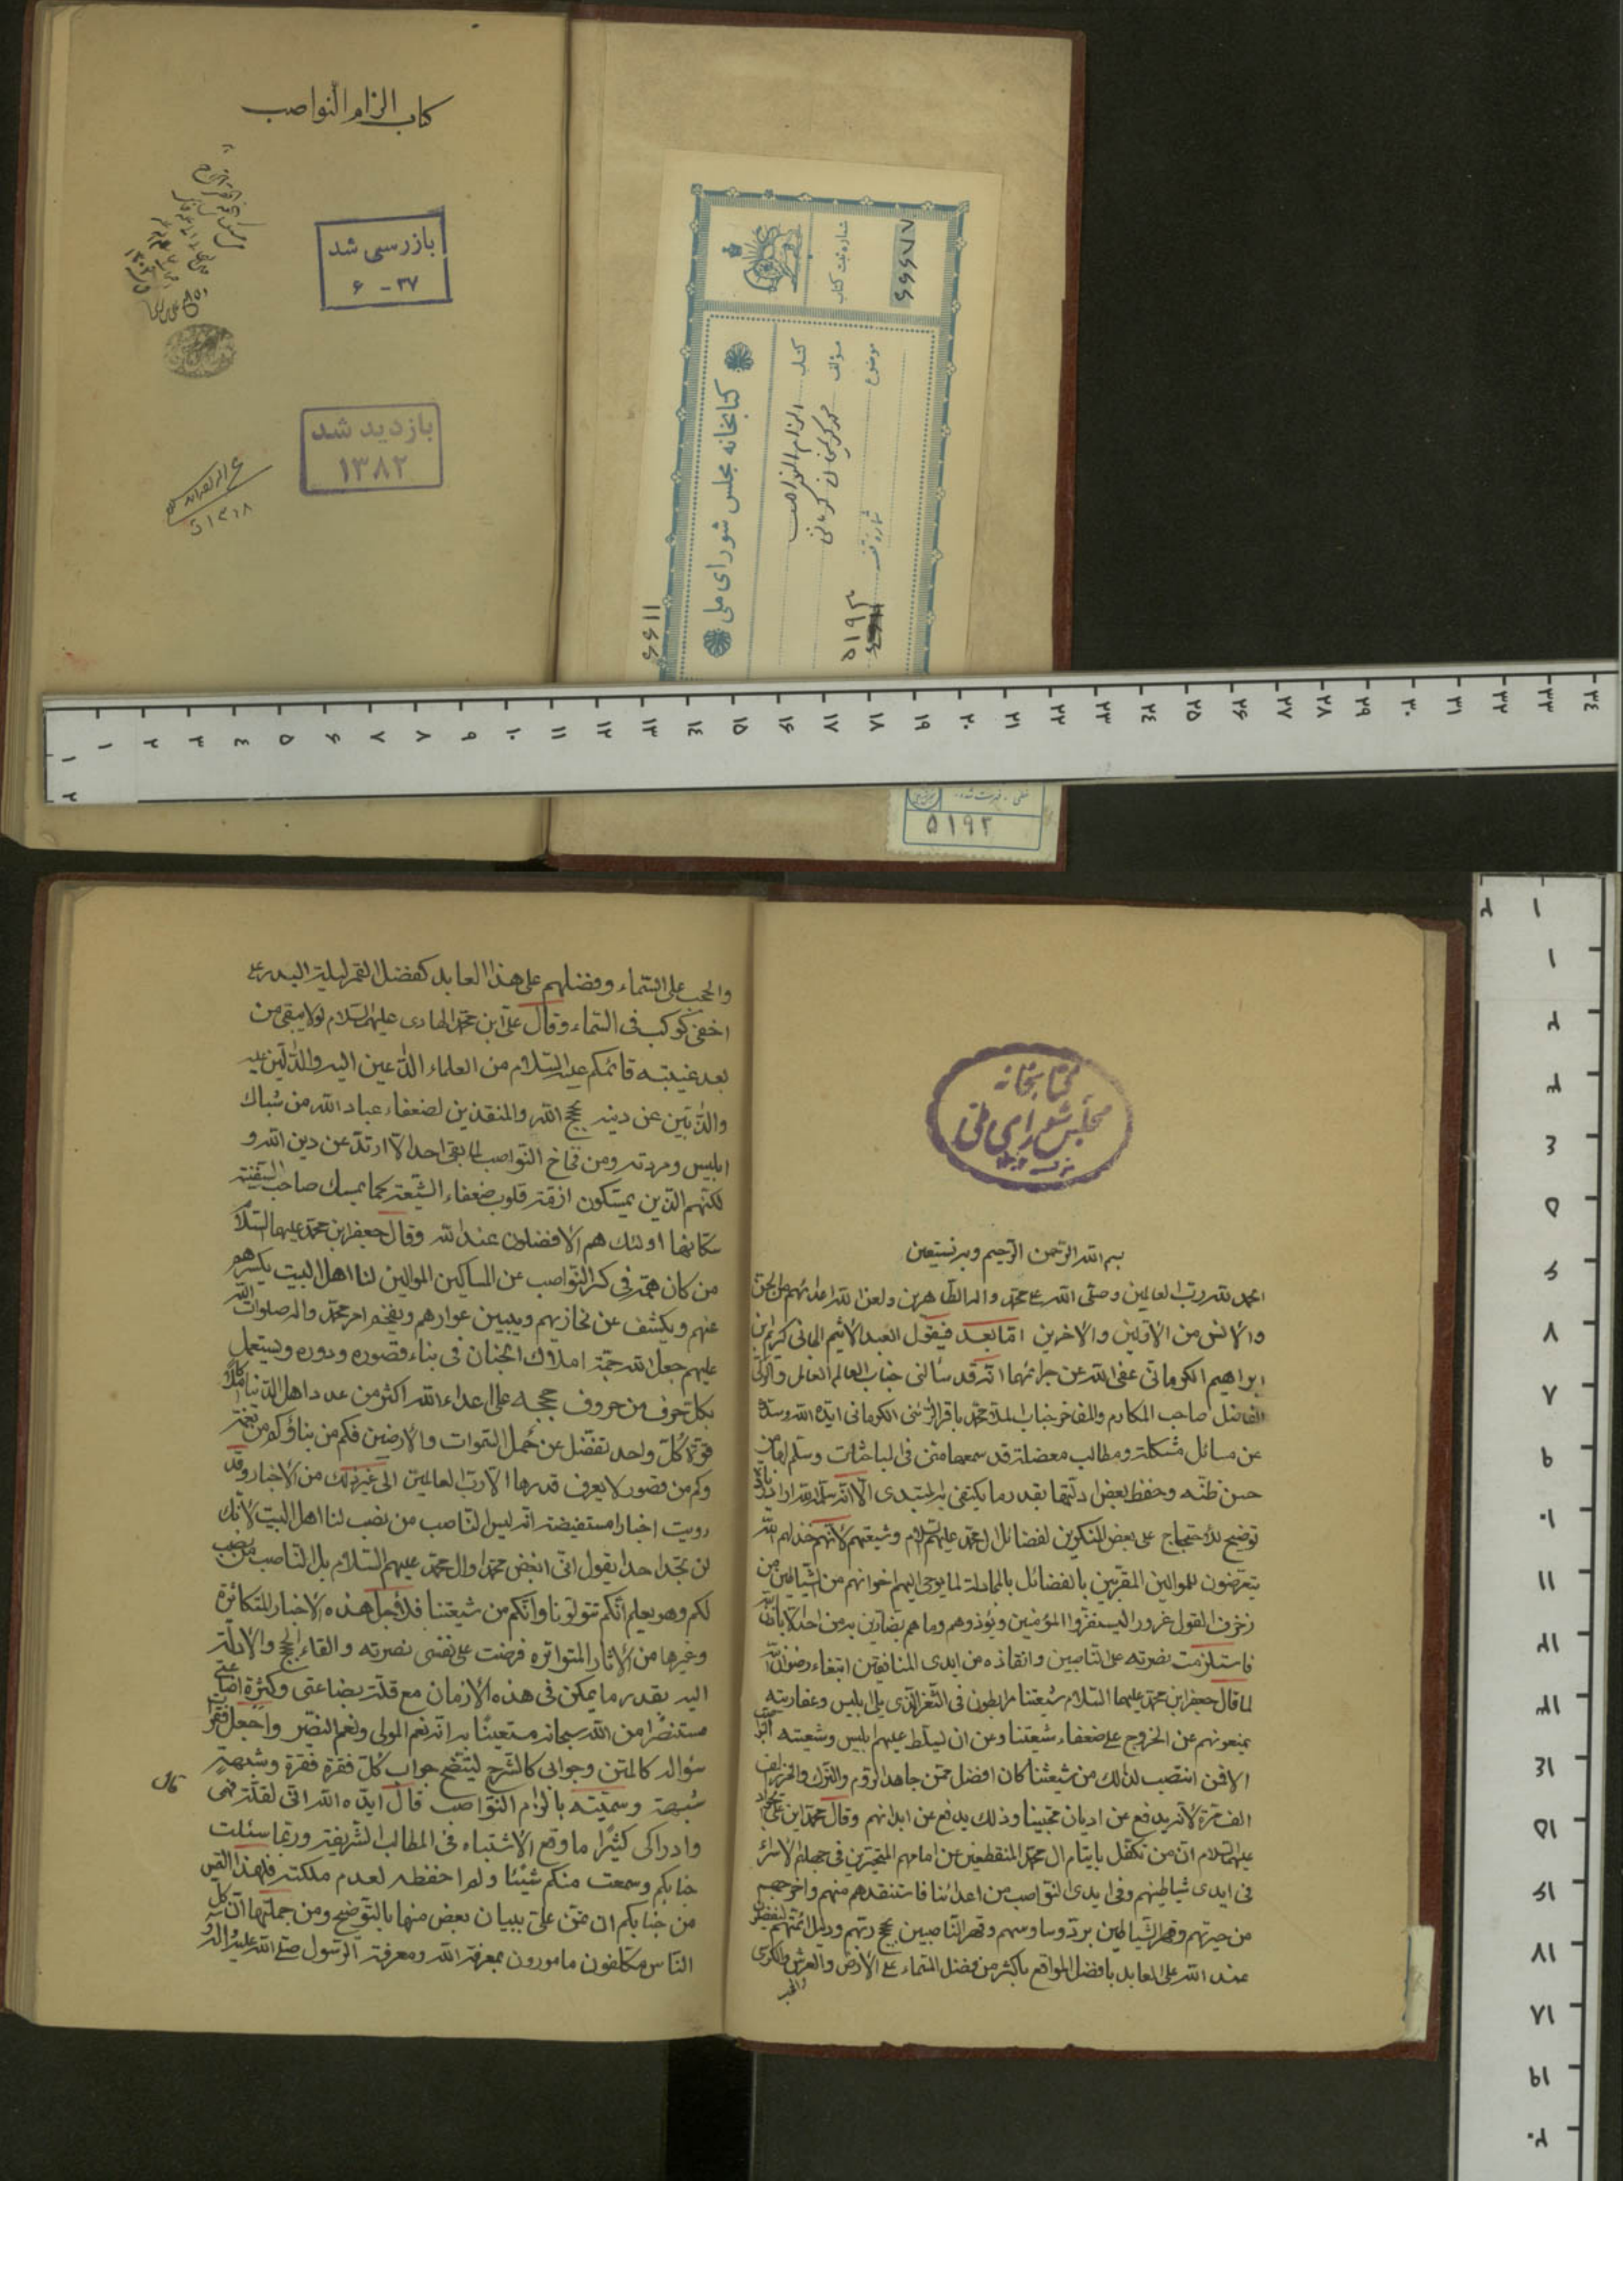 كتاب الزام النواصب
بازرسی شد
۳۷ - ۶
بازدید شد
۱۳۸۲
۱۳۱۸
کتابخانه مجلس شورای ملی
کتاب الزام النواصب
مؤلف محمد کریمخان کرمانی
موضوع
شماره ثبت کتاب
۶۶۶۷۷
۵۱۹۲
۱۱۶۶
۵۱۹۲
کتابخانه
مجلس شورای ملی
بسم الله الرحمن الرحيم وبه نستعين
الحمد لله رب العالمين وصلى الله على محمد واله الطاهرين ولعن الله اعدائهم من الجن
والانس من الاولين والاخرين اما بعد فيقول العبد الاثيم الجاني كريم ابن
ابراهيم الكرماني عفى الله عن جرائمهما انه قد سألنى جناب العالم العامل والولى
الفاضل صاحب المكارم والمفاخر جناب الملا محمد باقر الكرماني ايده الله وسدده
عن مسائل مشكلة ومطالب معضلة قد سمعها منى فى المباحثات وسلم لها من
حسن ظنه وحفظ بعض ادلتها بقدر ما يكتفى به المبتدى الا انه سلمه الله اراد زيادة
توضيح للاحتجاج على بعض المنكرين لفضائل ال محمد عليهم السلام وشيعتهم لانهم خذلهم الله
يتعرضون للموالين المقربين بالفضائل بالمجادلة لما يوحى اليهم اخوانهم من الشياطين من
زخرف القول غرورا ليستفزوا المؤمنين ويؤذوهم وما هم بضارين به من احد الا باذن الله
فاستلزمت نصرته على الناصبين وانقاذه من ايدى المنافقين ابتغاء رضوان الله
لما قال جعفر ابن محمد عليهما السلام شيعتنا مرابطون فى الثغر الذى يلى ابليس وعفاريته
يمنعونهم عن الخروج على ضعفاء شيعتنا وعن ان يسلط عليهم ابليس وشيعته
الا فمن انتصب لذلك من شيعتنا كان افضل ممن جاهد الروم والترك والخزر الف
الف مرة لانه يدفع عن اديان محبينا وذلك يدفع عن ابدانهم وقال محمد ابن على الجواد
عليهما السلام ان من تكفل بايتام ال محمد المنقطعين عن امامهم المتحيرين فى جهلهم الاسراء
فى ايدى شياطينهم وفى ايدى النواصب من اعدائنا فاستنقذهم منهم واخرجهم
من حيرتهم وقهر الشياطين برد وساوسهم وقهر الناصبين بحجج ربهم ودليل ائمتهم ليفضلون
عند الله على العابد بافضل المواقع باكثر من فضل السماء على الارض والعرش والكرسى
والحجب على السماء وفضلهم على هذا العابد كفضل القمر ليلة البدر على
اخفى كوكب فى السماء وقال على ابن محمد الهادى عليهما السلام لولا يبقى من
بعد غيبته قائمكم عليه السلام من العلماء الداعين اليه والدالين عليه
والذابين عن دينه بحجج الله والمنقذين لضعفاء عباد الله من شباك
ابليس ومردته ومن فخاخ النواصب لما بقى احد الا ارتد عن دين الله و
لكنهم الذين يمسكون ازمة قلوب ضعفاء الشيعة كما يمسك صاحب السفينة
سكانها اولئك هم الافضلون عند الله وقال جعفر ابن محمد عليهما السلام
من كان همه فى كسر النواصب عن المساكين الموالين لنا اهل البيت يكسرهم
عنهم ويكشف عن مخازيهم ويبين عوارهم ويفخم امر محمد واله صلوات الله
عليهم جعل الله همة املاك الجنان فى بناء قصوره ودوره ويستعمل
بكل حرف من حروف حججه على اعداء الله اكثر من عدد اهل الدنيا املاكا
قوة كل واحد تفضل عن حمل السموات والارضين فكم من بناء وكم من نعمة
وكم من قصور لا يعرف قدرها الا رب العالمين الى غير ذلك من الاخبار وقد
رويت اخبارا مستفيضة انه ليس الناصب من نصب لنا اهل البيت لانك
لن تجد احدا يقول انى ابغض محمدا وال محمد عليهم السلام بل الناصب من نصب
لكم وهو يعلم انكم تتولونا وانكم من شيعتنا فلاجل هذه الاخبار المتكاثرة
وغيرها من الاثار المتواترة فرضت على نفسى نصرته والقاء الحجج والادلة
اليه بقدر ما يمكن فى هذه الازمان مع قلة بضاعتى وكثرة اضاعتى
مستنصرا من الله سبحانه مستعينا به انه نعم المولى ونعم النصير واجعل فقرات
سؤاله كالمتن وجوابى كالشرح ليتضح جواب كل فقرة فقرة وشبهة
شبهة وسميته بالزام النواصب قال ايده الله انى لقلة فهمى
قال
وادراكى كثيرا ما وقع الاشتباه فى المطالب الشريفة وربما سئلت
جنابكم وسمعت منكم شيئا ولم احفظه لعدم ملكته فلهذا التمس
من جنابكم ان تمن على ببيان بعض منها بالتوضيح ومن جملتها ان كل
الناس مكلفون مامورون بمعرفة الله ومعرفة الرسول صلى الله عليه واله